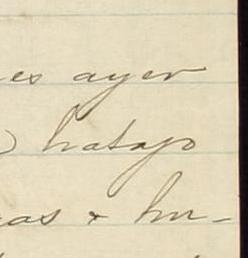 es ayer
) hatajo
as & hu-